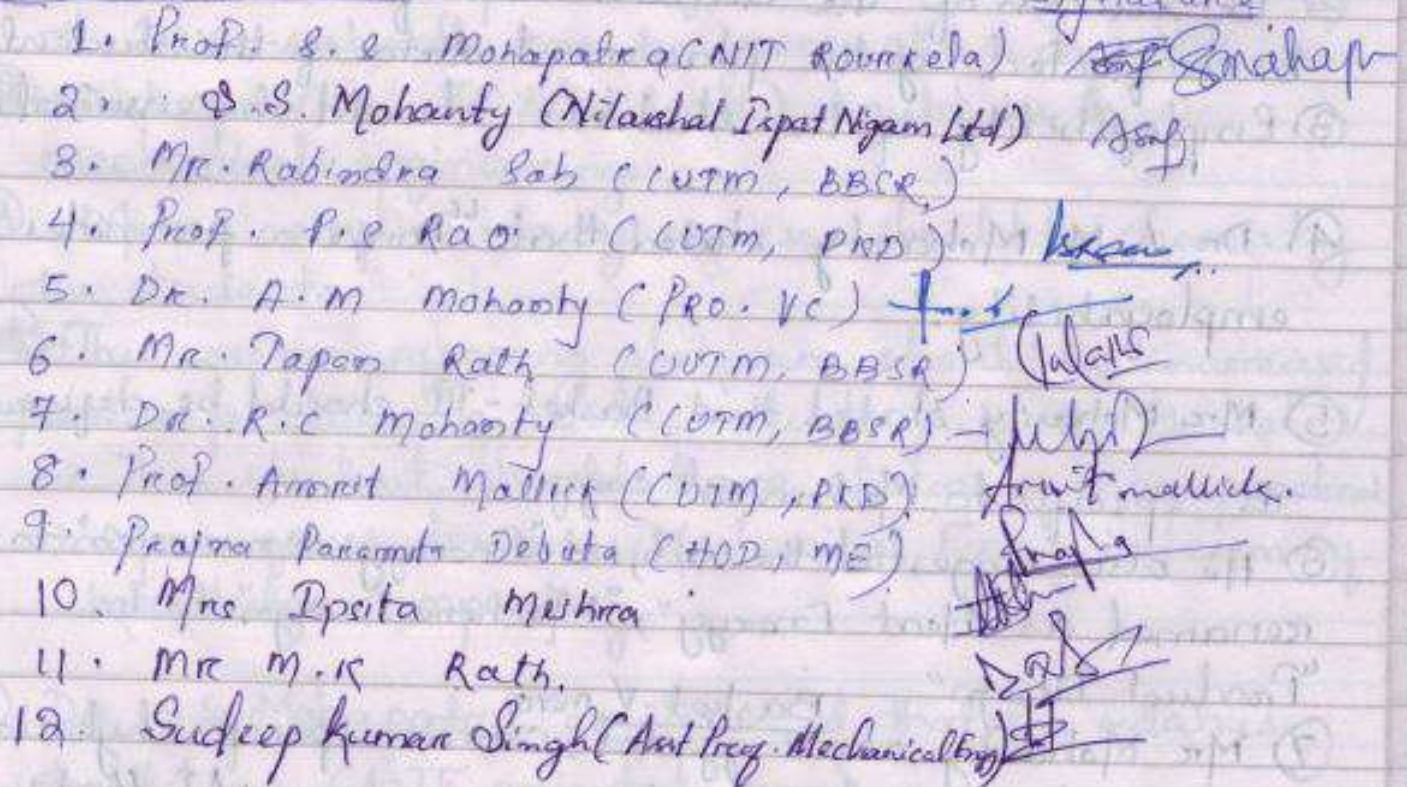 Signature
1. Prof. S. S Mohapatra (NIT Rourkela) Smahap
2. S.S. Mohanty (Nilaishal Ispat Nigam Ltd)
3. Mr. Rabindra Sah (CUTM, BBSR)
4. Prof. P. S Rao (CUTM, PKD)
5. Dr. A. M Mohanty (PRO. VC)
6. Mr. Tapan Rath (CUTM, BBSR)
7. Dr. R. C Mohanty (CUTM, BBSR)
8. Prof. Amrit Mallick (CUTM, PKD) Amrit mallick.
9. Prajna Paramita Debata (HOD, ME) Prajna
10. Mrs Ipsita Mishra
11. Mr M. K Rath.
12. Sudeep Kumar Singh (Asst Prof. Mechanical Eng)